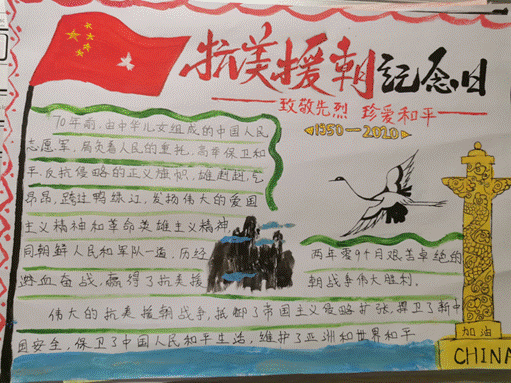 抗美援朝纪念日
致敬先烈 珍爱和平
1950—2020
70年前,由中华儿女组成的中国人民
志愿军,肩负着人民的重托,高举保卫和
平,反抗侵略的正义旗帜,雄赳赳,气
昂昂,跨过鸭绿江,发扬伟大的爱国
主义精神和革命英雄主义精神
同朝鲜人民和军队一道,历经
两年零9个月艰苦卓绝的
浴血奋战,赢得了抗美援
朝战争伟大胜利.
伟大的抗美援朝战争,抵御了帝国主义侵略扩张,捍卫了新中
国安全,保卫了中国人民和平生活,维护了亚洲和世界和平
加油
CHINA